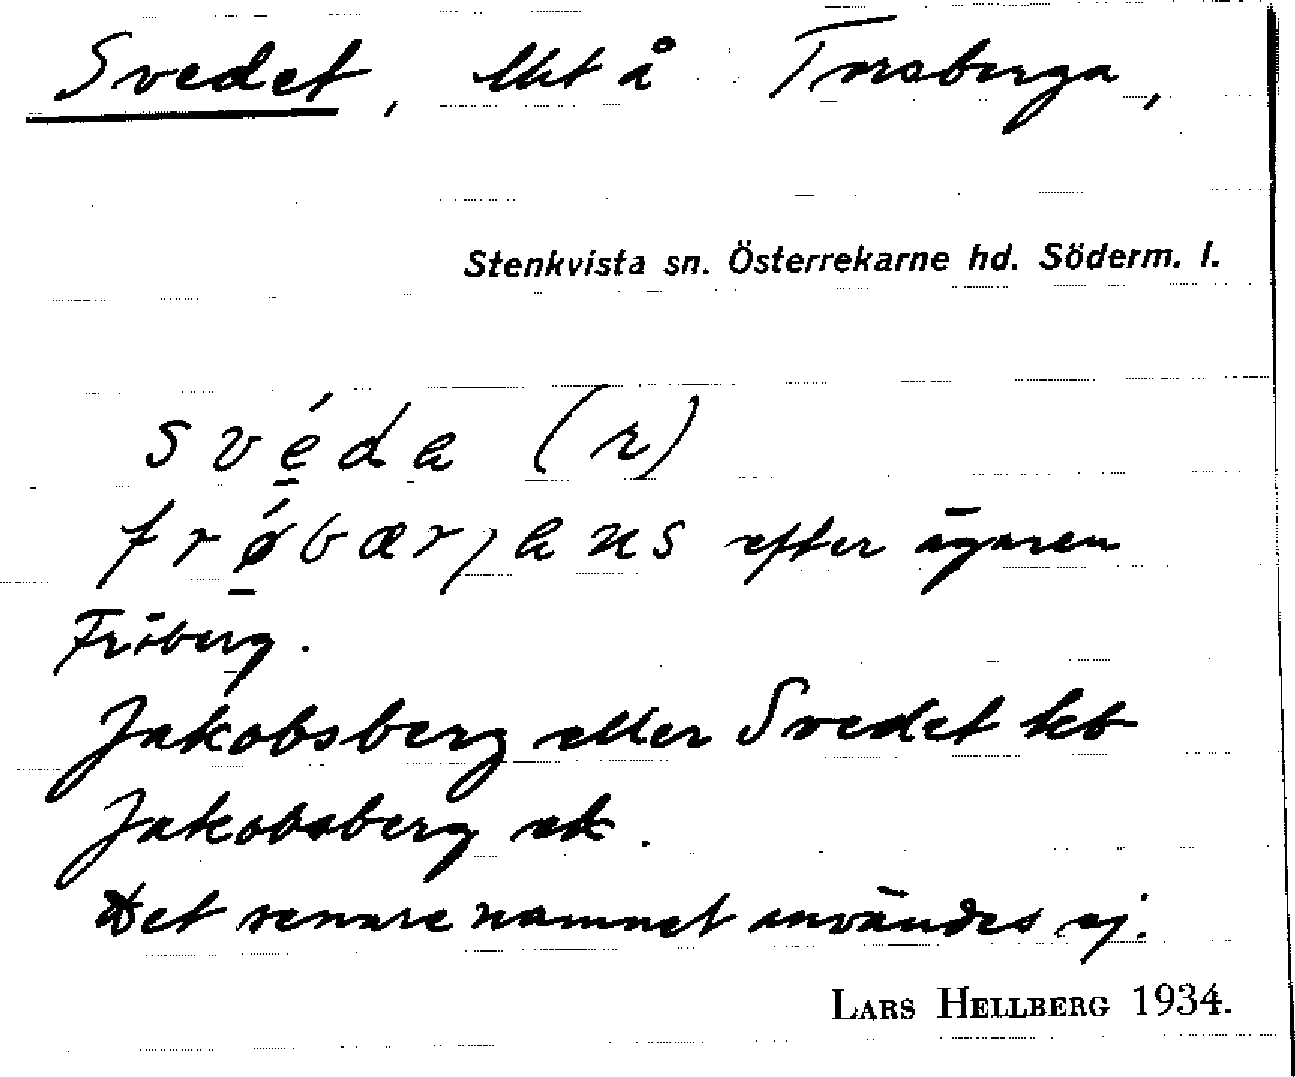 Svedet, lht å Torsberga,
Stenkvista sn. Österrekarne hd. Söderm. l.
svéda (r)
frǿbærjans efter ägaren
Fröberg.
Jakobsberg eller Svedet kb
Jakobsberg ek.
Det senare namnet användes ej.
LARS HELLBERG 1934.